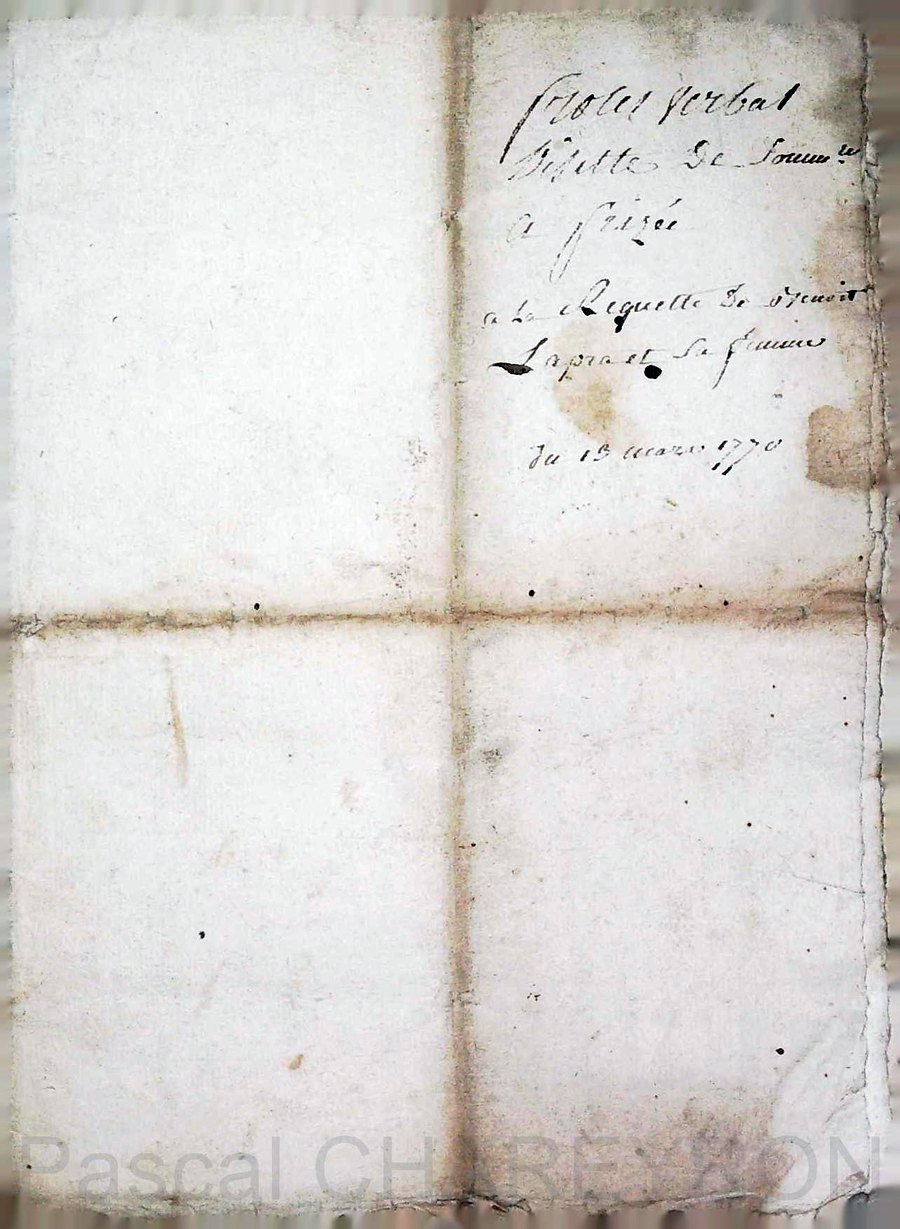 proces verbal
Visitte De Domm.re
a prizée
a La Requette De Benoit
Lapra et Sa femme
du 13 mars 1770
Pascal CHAREYRON